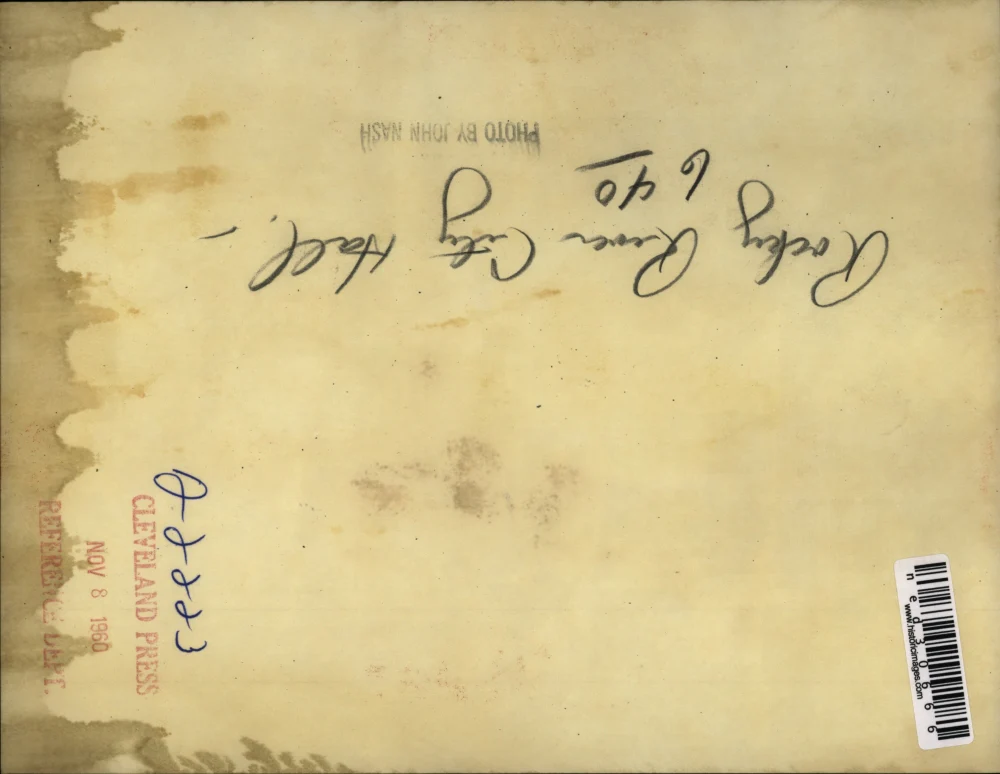 Rocky River City Hall. -
640
PHOTO BY JOHN NASH
02223
CLEVELAND PRESS
NOV 8 1960
REFERENCE DEPT.
ned30666
www.historicimages.com